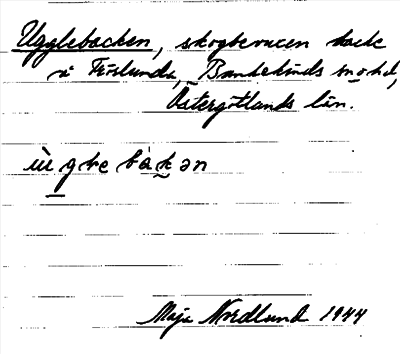 Ugglebacken, skogbevuxen backe
i Fröslunda, Bankekinds sn o. hd,
Östergötlands län.
Maja Nordlund 1944